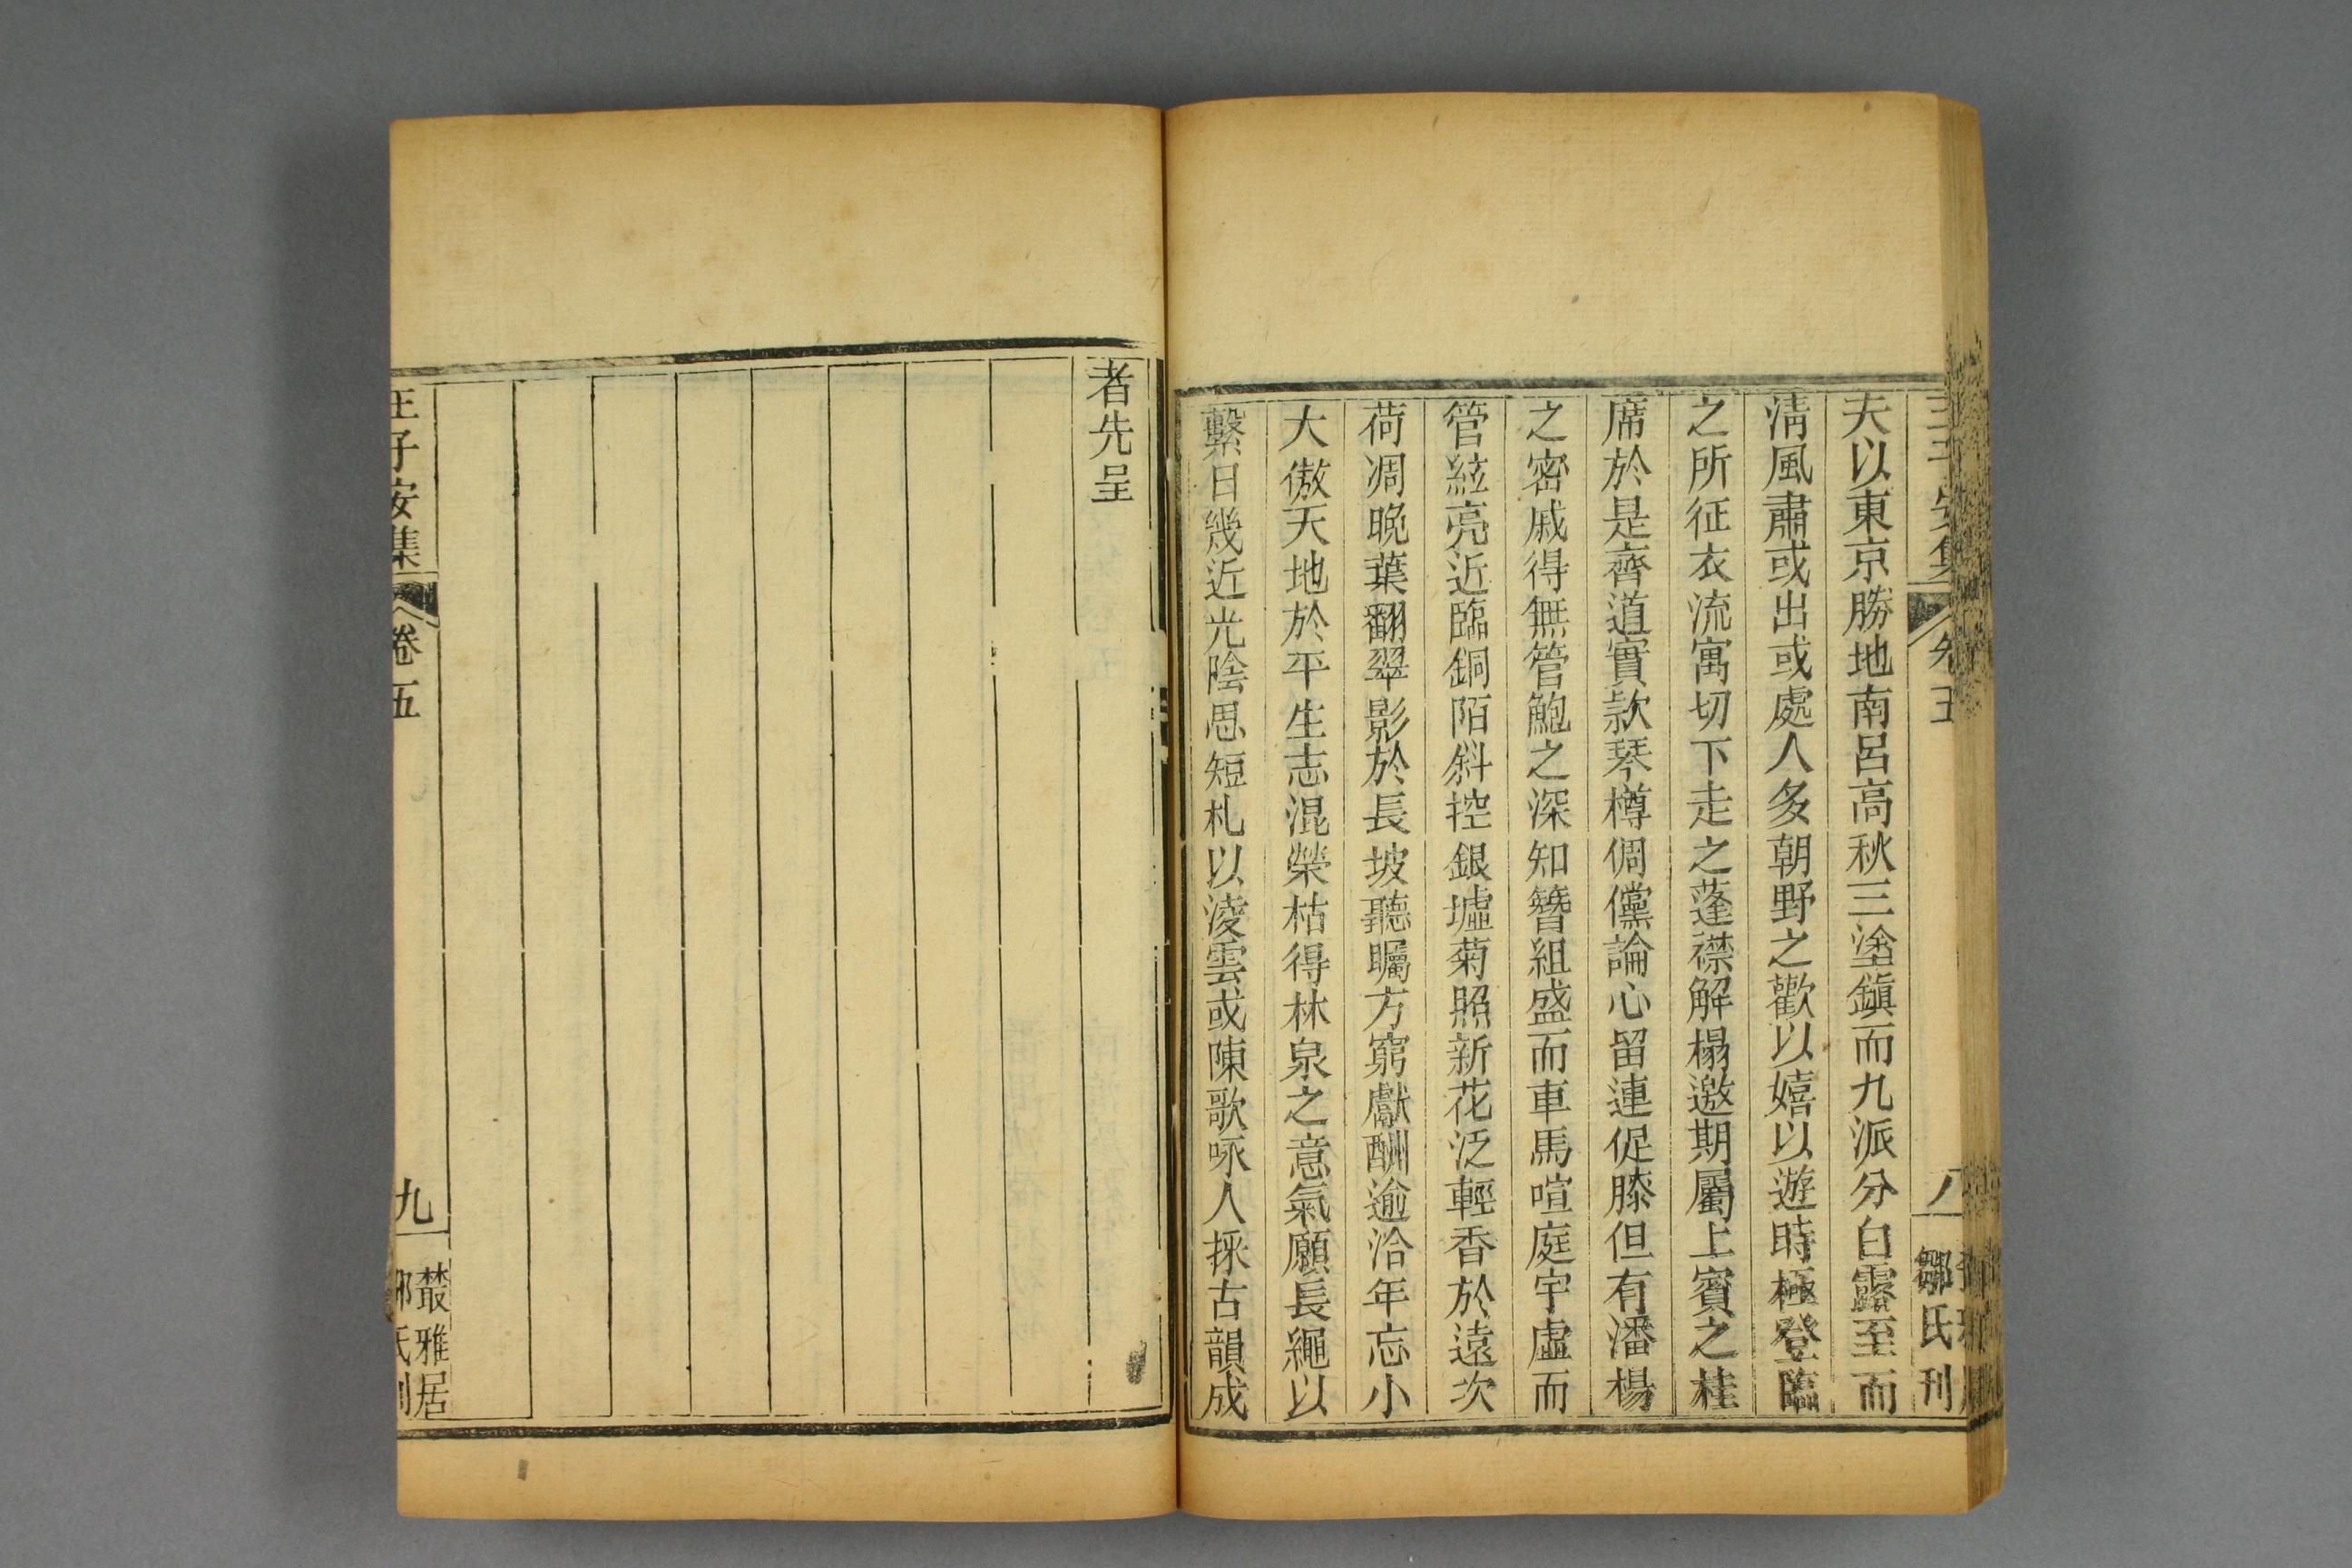 王子安集 卷五 八 鄒氏刊
夫以東京勝地南呂高秋三塗鎭而九派分白露至而
淸風肅或出或處人多朝野之歡以嬉以遊時極登臨
之所征衣流寓切下走之蓬襟解榻邀期屬上賓之桂
席於是齊道實款琴樽倜儻論心留連促膝但有潘楊
之密戚得無管鮑之深知簪組盛而車馬喧庭宇虛而
管絃亮近臨銅陌斜控銀墟菊照新花泛輕香於遠次
荷凋晚葉翻翠影於長坡聽矚方窮獻酬逾洽年忘小
大傲天地於平生志混榮枯得林泉之意氣願長繩以
繫日幾近光陰思短札以淩雲或陳歌咏人採古韻成
者先呈
王子安集 卷五 九 叢雅居 鄒氏刊